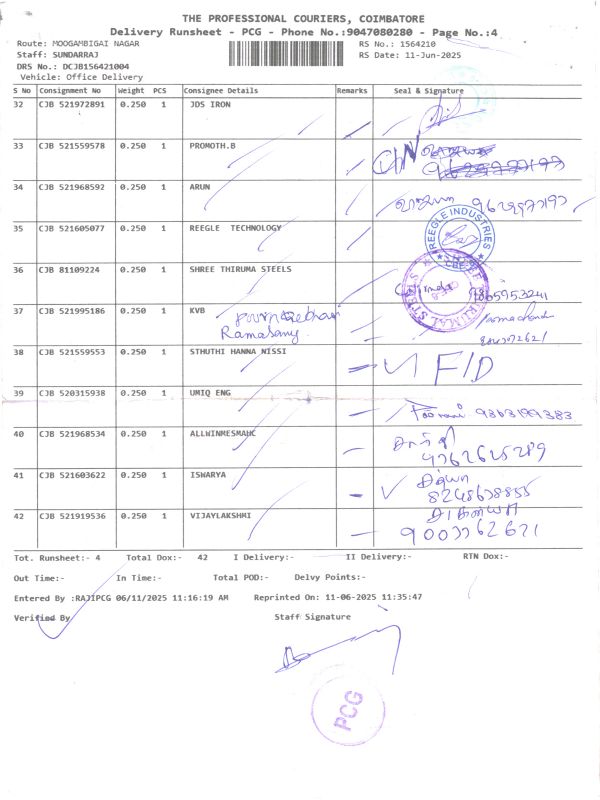 THE PROFESSIONAL COURIERS, COIMBATORE
Delivery Runsheet - PCG - Phone No.:9047080280 - Page No.:4
Route: MOOGAMBIGAI NAGAR
RS No.: 1564210
Staff: SUNDARRAJ
RS Date: 11-Jun-2025
DRS No.: DCJB156421004
Vehicle: Office Delivery
S No Consignment No Weight PCS Consignee Details Remarks Seal & Signature
32 CJB 521972891 0.250 1 JDS IRON
33 CJB 521559578 0.250 1 PROMOTH.B
34 CJB 521968592 0.250 1 ARUN
35 CJB 521605077 0.250 1 REEGLE TECHNOLOGY
REEGLE INDUSTRIES
CBE
36 CJB 81109224 0.250 1 SHREE THIRUMA STEELS
9865953241
37 CJB 521995186 0.250 1 KVB
Ramasamy
38 CJB 521559553 0.250 1 STHUTHI HANNA NISSI F/D
39 CJB 520315938 0.250 1 UMIQ ENG
40 CJB 521968534 0.250 1 ALLWINMESMAHC
41 CJB 521603622 0.250 1 ISWARYA
42 CJB 521919536 0.250 1 VIJAYLAKSHMI
Tot. Runsheet:- 4 Total Dox:- 42 I Delivery:- II Delivery:- RTN Dox:-
Out Time:- In Time:- Total POD:- Delvy Points:-
Entered By :RAJIPCG 06/11/2025 11:16:19 AM Reprinted On: 11-06-2025 11:35:47
Verified By Staff Signature
PCG